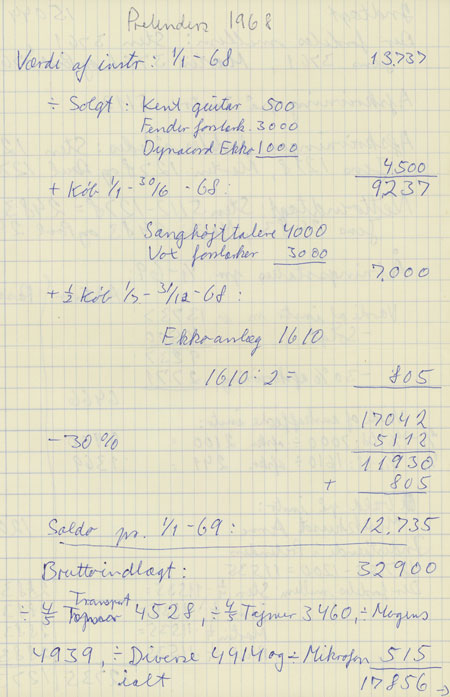 Prelenders 1968
Værdi af instr: 1/1 - 68: 13.737
÷ Solgt: Kent guitar 500
Fender forstærk. 3000
Dynacord Ekko 1000
4.500
+ Køb 1/1 - 30/6 - 68: 9237
Sanghöjttalere 4000
Vox forstærker 3000
7.000
+ 1/2 Køb 1/7 - 31/12 - 68:
Ekkoanlæg 1610
1610 : 2 = 805
17042
- 30% 5112
11930
+ 805
Saldo pr. 1/1 - 69: 12.735
Bruttoindlagt: 32900
Transport
÷ 4/5 4528, ÷ 4/5 Tajmer 3460, ÷ Mogens
4939, ÷ Diverse 4414 og ÷ Mikrofon 515
ialt 17856 →